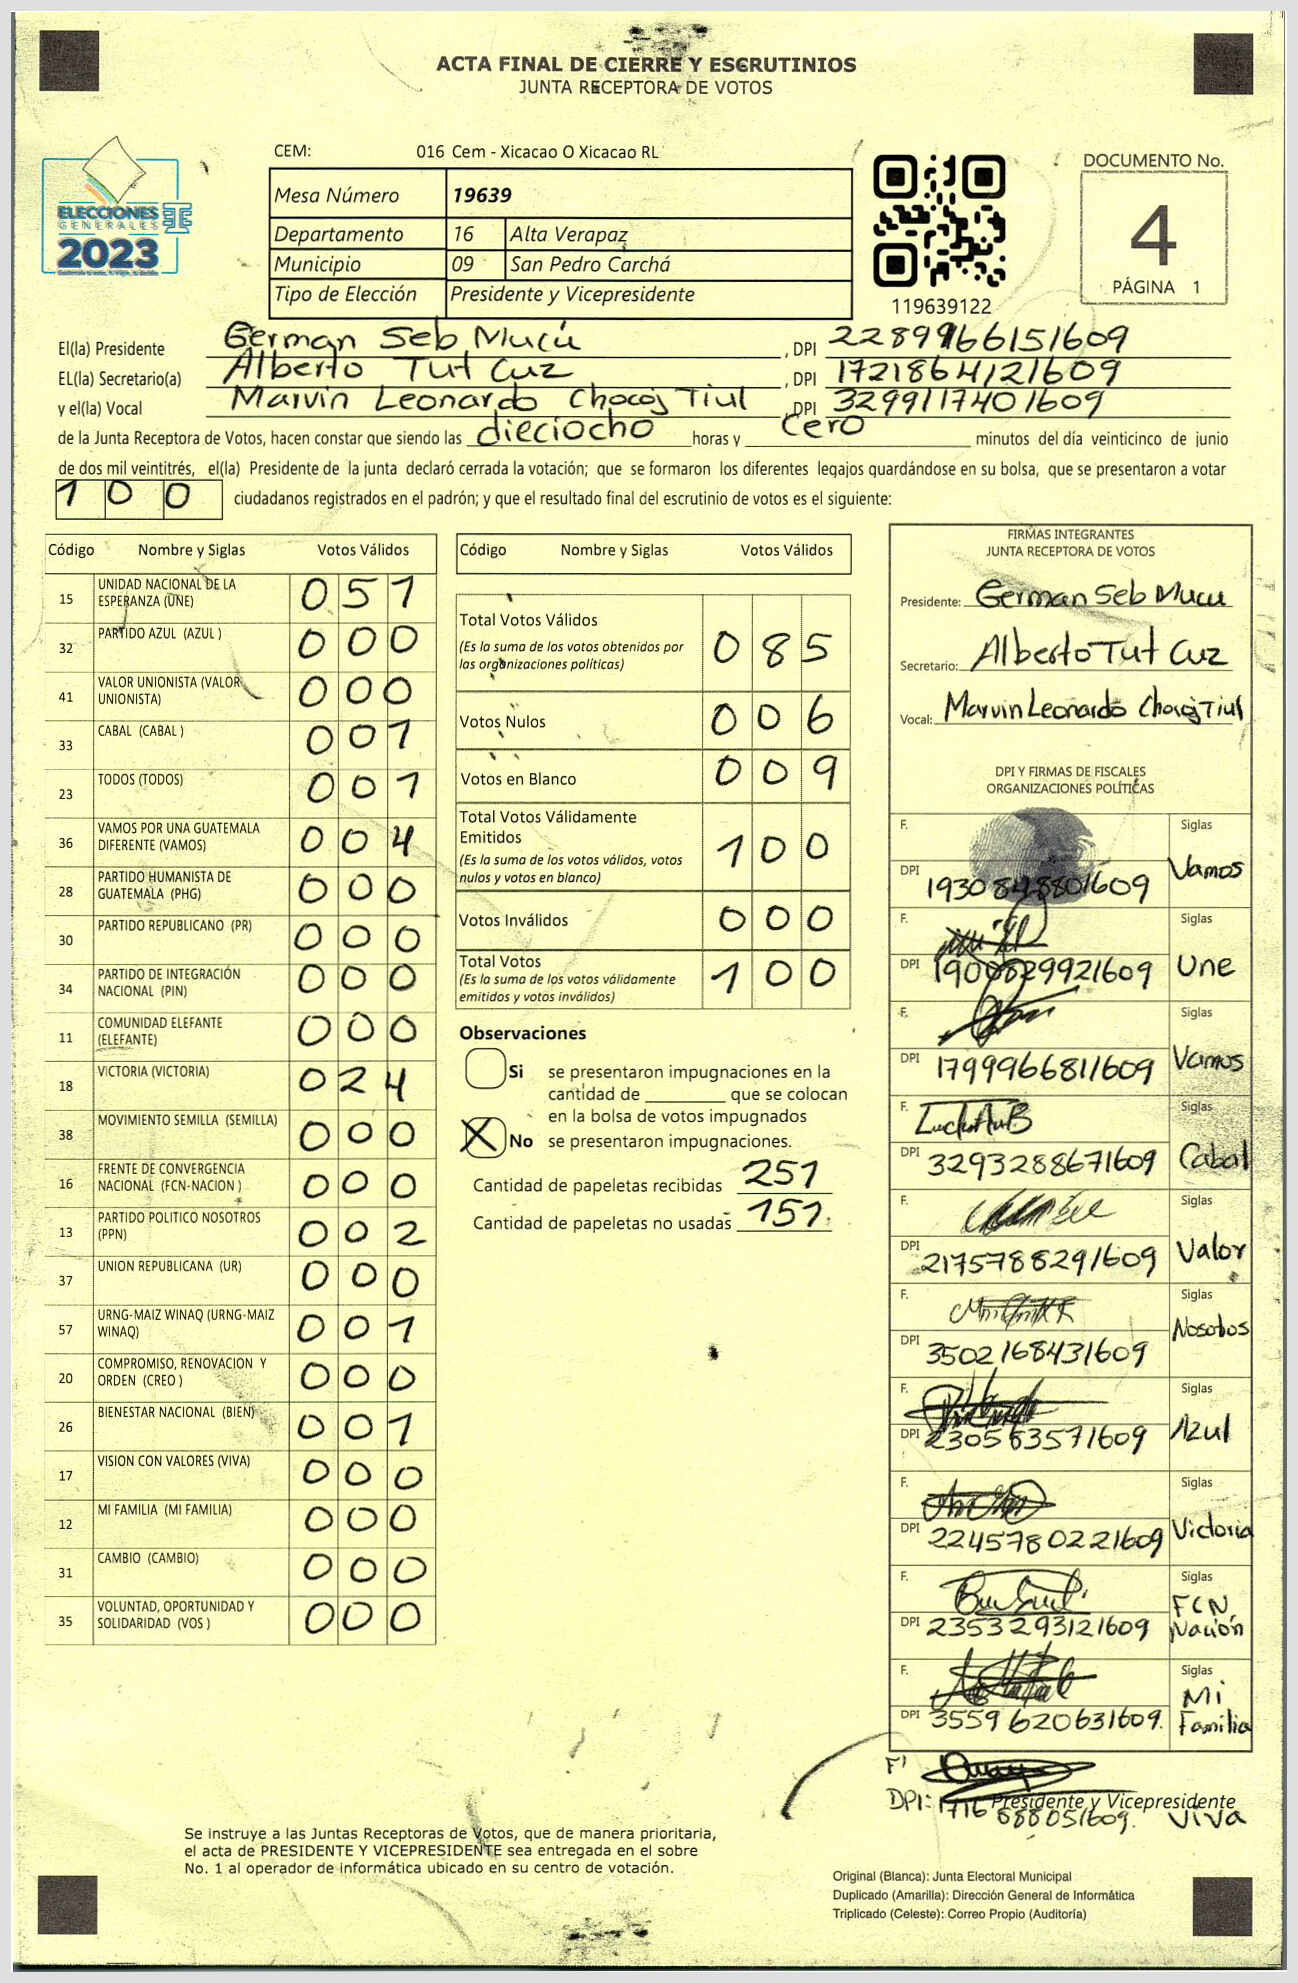 ACTA FINAL DE CIERRE Y ESCRUTINIOS
JUNTA RECEPTORA DE VOTOS
ELECCIONES
GENERALES
2023
CEM: 016 Cem - Xicacao O Xicacao RL
Mesa Número 19639
Departamento 16 Alta Verapaz
Municipio 09 San Pedro Carchá
Tipo de Elección Presidente y Vicepresidente
119639122
DOCUMENTO No.
4
PÁGINA 1
El(la) Presidente German Seb Mucú , DPI 2289966151609
EL(la) Secretario(a) Alberto Tut Cuz , DPI 1721864121609
y el(la) Vocal Marvin Leonardo Chocoj Tiul , DPI 3299117401609
de la Junta Receptora de Votos, hacen constar que siendo las dieciocho horas y cero minutos del día veinticinco de junio
de dos mil veintitrés, el(la) Presidente de la junta declaró cerrada la votación; que se formaron los diferentes legajos quardándose en su bolsa, que se presentaron a votar
100 ciudadanos registrados en el padrón; y que el resultado final del escrutinio de votos es el siguiente:
Código Nombre y Siglas Votos Válidos
15 UNIDAD NACIONAL DE LA ESPERANZA (UNE) 051
32 PARTIDO AZUL (AZUL ) 000
41 VALOR UNIONISTA (VALOR UNIONISTA) 000
33 CABAL (CABAL ) 001
23 TODOS (TODOS) 001
36 VAMOS POR UNA GUATEMALA DIFERENTE (VAMOS) 004
28 PARTIDO HUMANISTA DE GUATEMALA (PHG) 000
30 PARTIDO REPUBLICANO (PR) 000
34 PARTIDO DE INTEGRACIÓN NACIONAL (PIN) 000
11 COMUNIDAD ELEFANTE (ELEFANTE) 000
18 VICTORIA (VICTORIA) 024
38 MOVIMIENTO SEMILLA (SEMILLA) 000
16 FRENTE DE CONVERGENCIA NACIONAL (FCN-NACION ) 000
13 PARTIDO POLITICO NOSOTROS (PPN) 002
37 UNION REPUBLICANA (UR) 000
57 URNG-MAIZ WINAQ (URNG-MAIZ WINAQ) 001
20 COMPROMISO, RENOVACION Y ORDEN (CREO ) 000
26 BIENESTAR NACIONAL (BIEN) 001
17 VISION CON VALORES (VIVA) 000
12 MI FAMILIA (MI FAMILIA) 000
31 CAMBIO (CAMBIO) 000
35 VOLUNTAD, OPORTUNIDAD Y SOLIDARIDAD (VOS ) 000
Código Nombre y Siglas Votos Válidos
Total Votos Válidos 085
(Es la suma de los votos obtenidos por
las organizaciones políticas)
Votos Nulos 006
Votos en Blanco 009
Total Votos Válidamente
Emitidos 100
(Es la suma de los votos válidos, votos
nulos y votos en blanco)
Votos Inválidos 000
Total Votos 100
(Es la suma de los votos válidamente
emitidos y votos inválidos)
Observaciones
Si se presentaron impugnaciones en la
cantidad de ________ que se colocan
en la bolsa de votos impugnados
X No se presentaron impugnaciones.
Cantidad de papeletas recibidas 251
Cantidad de papeletas no usadas 151
FIRMAS INTEGRANTES
JUNTA RECEPTORA DE VOTOS
Presidente: German Seb Mucu
Secretario: Alberto Tut Cuz
Vocal: Marvin Leonardo Chocoj Tiul
DPI Y FIRMAS DE FISCALES
ORGANIZACIONES POLÍTICAS
F. Siglas
DPI 1930848801609 Vamos
F. Siglas
DPI 1900829921609 Une
F. Siglas
DPI 1799966811609 Vamos
F. Siglas
DPI 3293288671609 Cabal
F. Siglas
DPI 2175788291609 Valor
F. Siglas
DPI 3502168431609 Nosotros
F. Siglas
DPI 230563571609 Azul
F. Siglas
DPI 2245780221609 Victoria
F. Siglas
DPI 2353293121609 FCN Nación
F. Siglas
DPI 3559620631609. Mi Familia
F'
Presidente y Vicepresidente
DPI: 1716888051609. Viva
Se instruye a las Juntas Receptoras de Votos, que de manera prioritaria,
el acta de PRESIDENTE Y VICEPRESIDENTE sea entregada en el sobre
No. 1 al operador de informática ubicado en su centro de votación.
Original (Blanca): Junta Electoral Municipal
Duplicado (Amarilla): Dirección General de Informática
Triplicado (Celeste): Correo Propio (Auditoría)